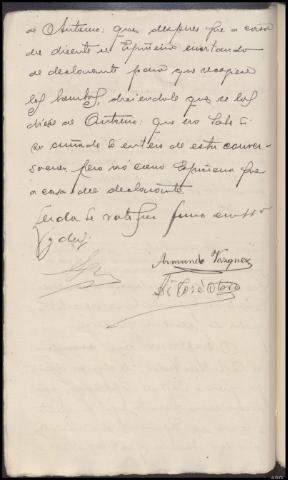 de Antonio; que despues fue a casa
del dicente el Espiñeira invitando
al declarante para que recogiese
las bombas, diciendole que se las
diese a Antonio; que no sabe si
su cuñado se enteró de esta conver-
sacion, pero no como Espiñeira fue
a casa del declarante.
Leida se ratifica firma con SSª
Y doy fe
Armando Vazquez
José Otero